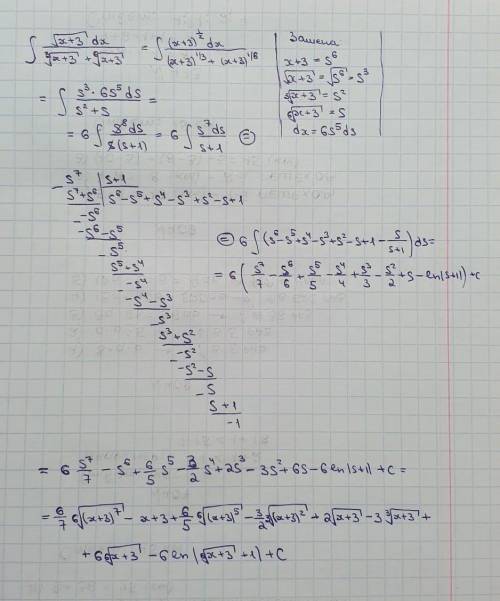 ∫ √(x+3) dx / (∛(x+3) + ⁶√(x+3)) = ∫ (x+3)^(1/2) dx / ((x+3)^(1/3) + (x+3)^(1/6))
Замена
x+3 = s⁶
√(x+3) = √s⁶ = s³
∛(x+3) = s²
⁶√(x+3) = s
dx = 6s⁵ds
= ∫ s³ · 6s⁵ds / (s² + s) =
= 6 ∫ s⁸ds / (s(s+1)) = 6 ∫ s⁷ds / (s+1) =
s⁷ | s+1
s⁷+s⁶ | s⁶ - s⁵ + s⁴ - s³ + s² - s + 1
-s⁶
-s⁶ - s⁵
s⁵
s⁵ + s⁴
-s⁴
-s⁴ - s³
s³
s³ + s²
-s²
-s² - s
s
s + 1
-1
= 6 ∫ (s⁶ - s⁵ + s⁴ - s³ + s² - s + 1 - s/(s+1)) ds =
= 6 (s⁷/7 - s⁶/6 + s⁵/5 - s⁴/4 + s³/3 - s²/2 + s - ln|s+1|) + c
= 6 s⁷/7 - s⁶ + 6/5 s⁵ - 3/2 s⁴ + 2s³ - 3s² + 6s - 6 ln|s+1| + C =
= 6/7 ⁶√(x+3)⁷ - x + 3 + 6/5 ⁶√(x+3)⁵ - 3/2 ∛(x+3)² + 2√(x+3) - 3∛(x+3) +
+ 6 ⁶√(x+3) - 6 ln|⁶√(x+3) + 1| + C